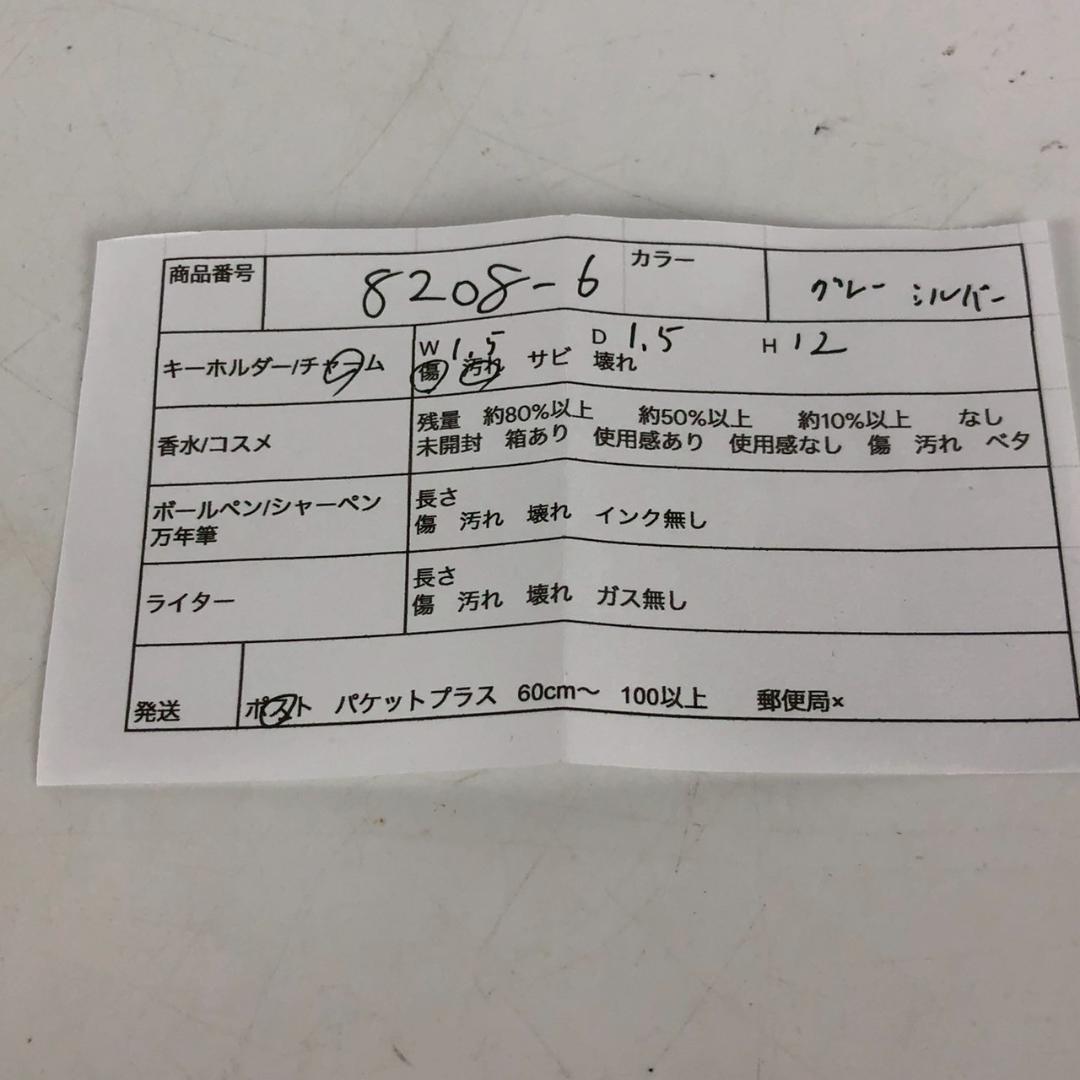 商品番号 8208-6 カラー グレー シルバー
キーホルダー/チャーム W 1.5 D 1.5 H 12
傷 汚れ サビ 壊れ
香水/コスメ 残量 約80%以上 約50%以上 約10%以上 なし
未開封 箱あり 使用感あり 使用感なし 傷 汚れ ベタ
ボールペン/シャーペン 長さ
万年筆 傷 汚れ 壊れ インク無し
ライター 長さ
傷 汚れ 壊れ ガス無し
発送 ポスト パケットプラス 60cm〜 100以上 郵便局×